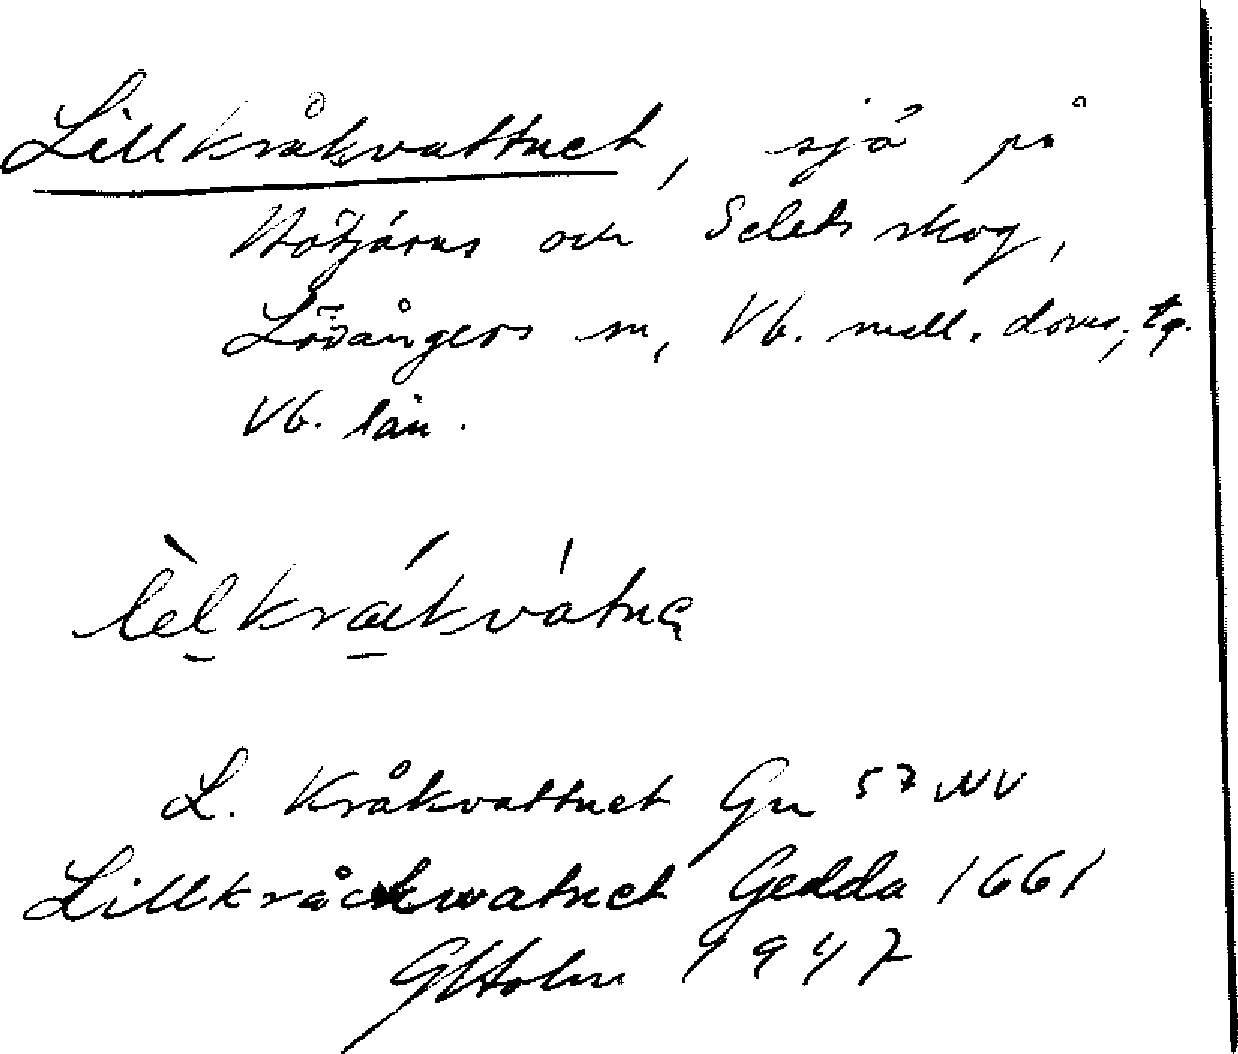 Lillkråkvattnet, sjö på
Hötjärns och Selets skog,
Lövångers sn, Vb. mell. doms. tg.
Vb. län.
L. Kråkvattnet Gn 57 NV
Lillkråckwatnet Gedda 1661
GHolm 1947